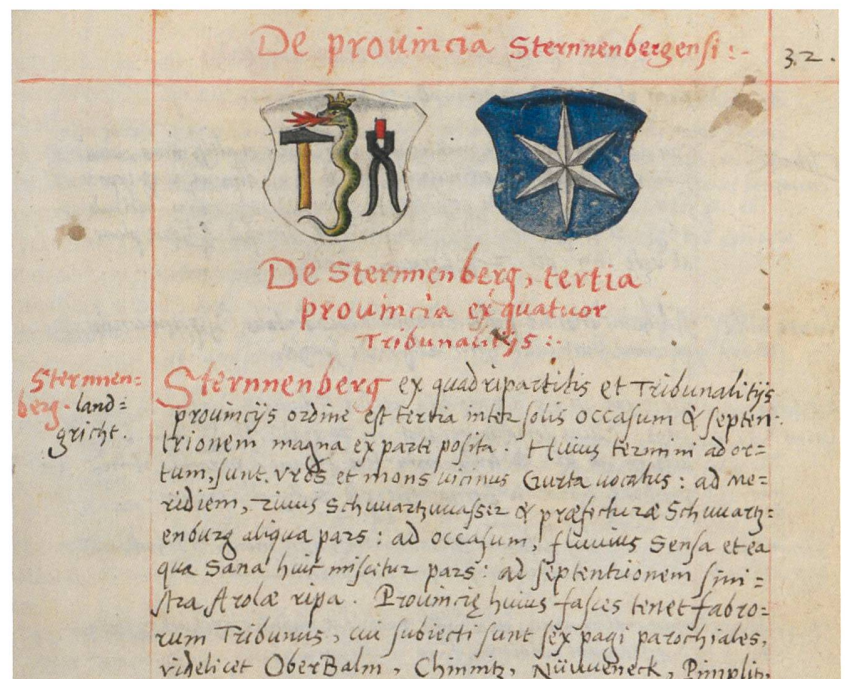 De prouincia Sternnenbergensi:-
32.
De Sternnenberg, tertia
prouincia ex quatuor
Tribunalitijs:-
Sternnen=
berg. land=
gricht.
Sternnenberg ex quadripartitis et Tribunalitijs
prouincijs ordine est tertia inter solis occasum & septen-
trionem magna ex parte posita. Huius termini ad or=
tum, sunt. vrbs et mons vicinus Gurta uocatus: ad Me=
ridiem, riuus Schwartzwasser & præfecturæ Schwartz=
enburg aliqua pars: ad occasum, fluuius Sensa et ea
qua Sana huic miscetur pars: ad septentrionem sini=
stra Arolæ ripa. Prouincię huius fasces tenet fabro=
rum Tribunus, cui subiecti sunt sex pagi parochiales,
videlicet OberBalm, Chinnitz, Nüwweneck, Pimplitz,